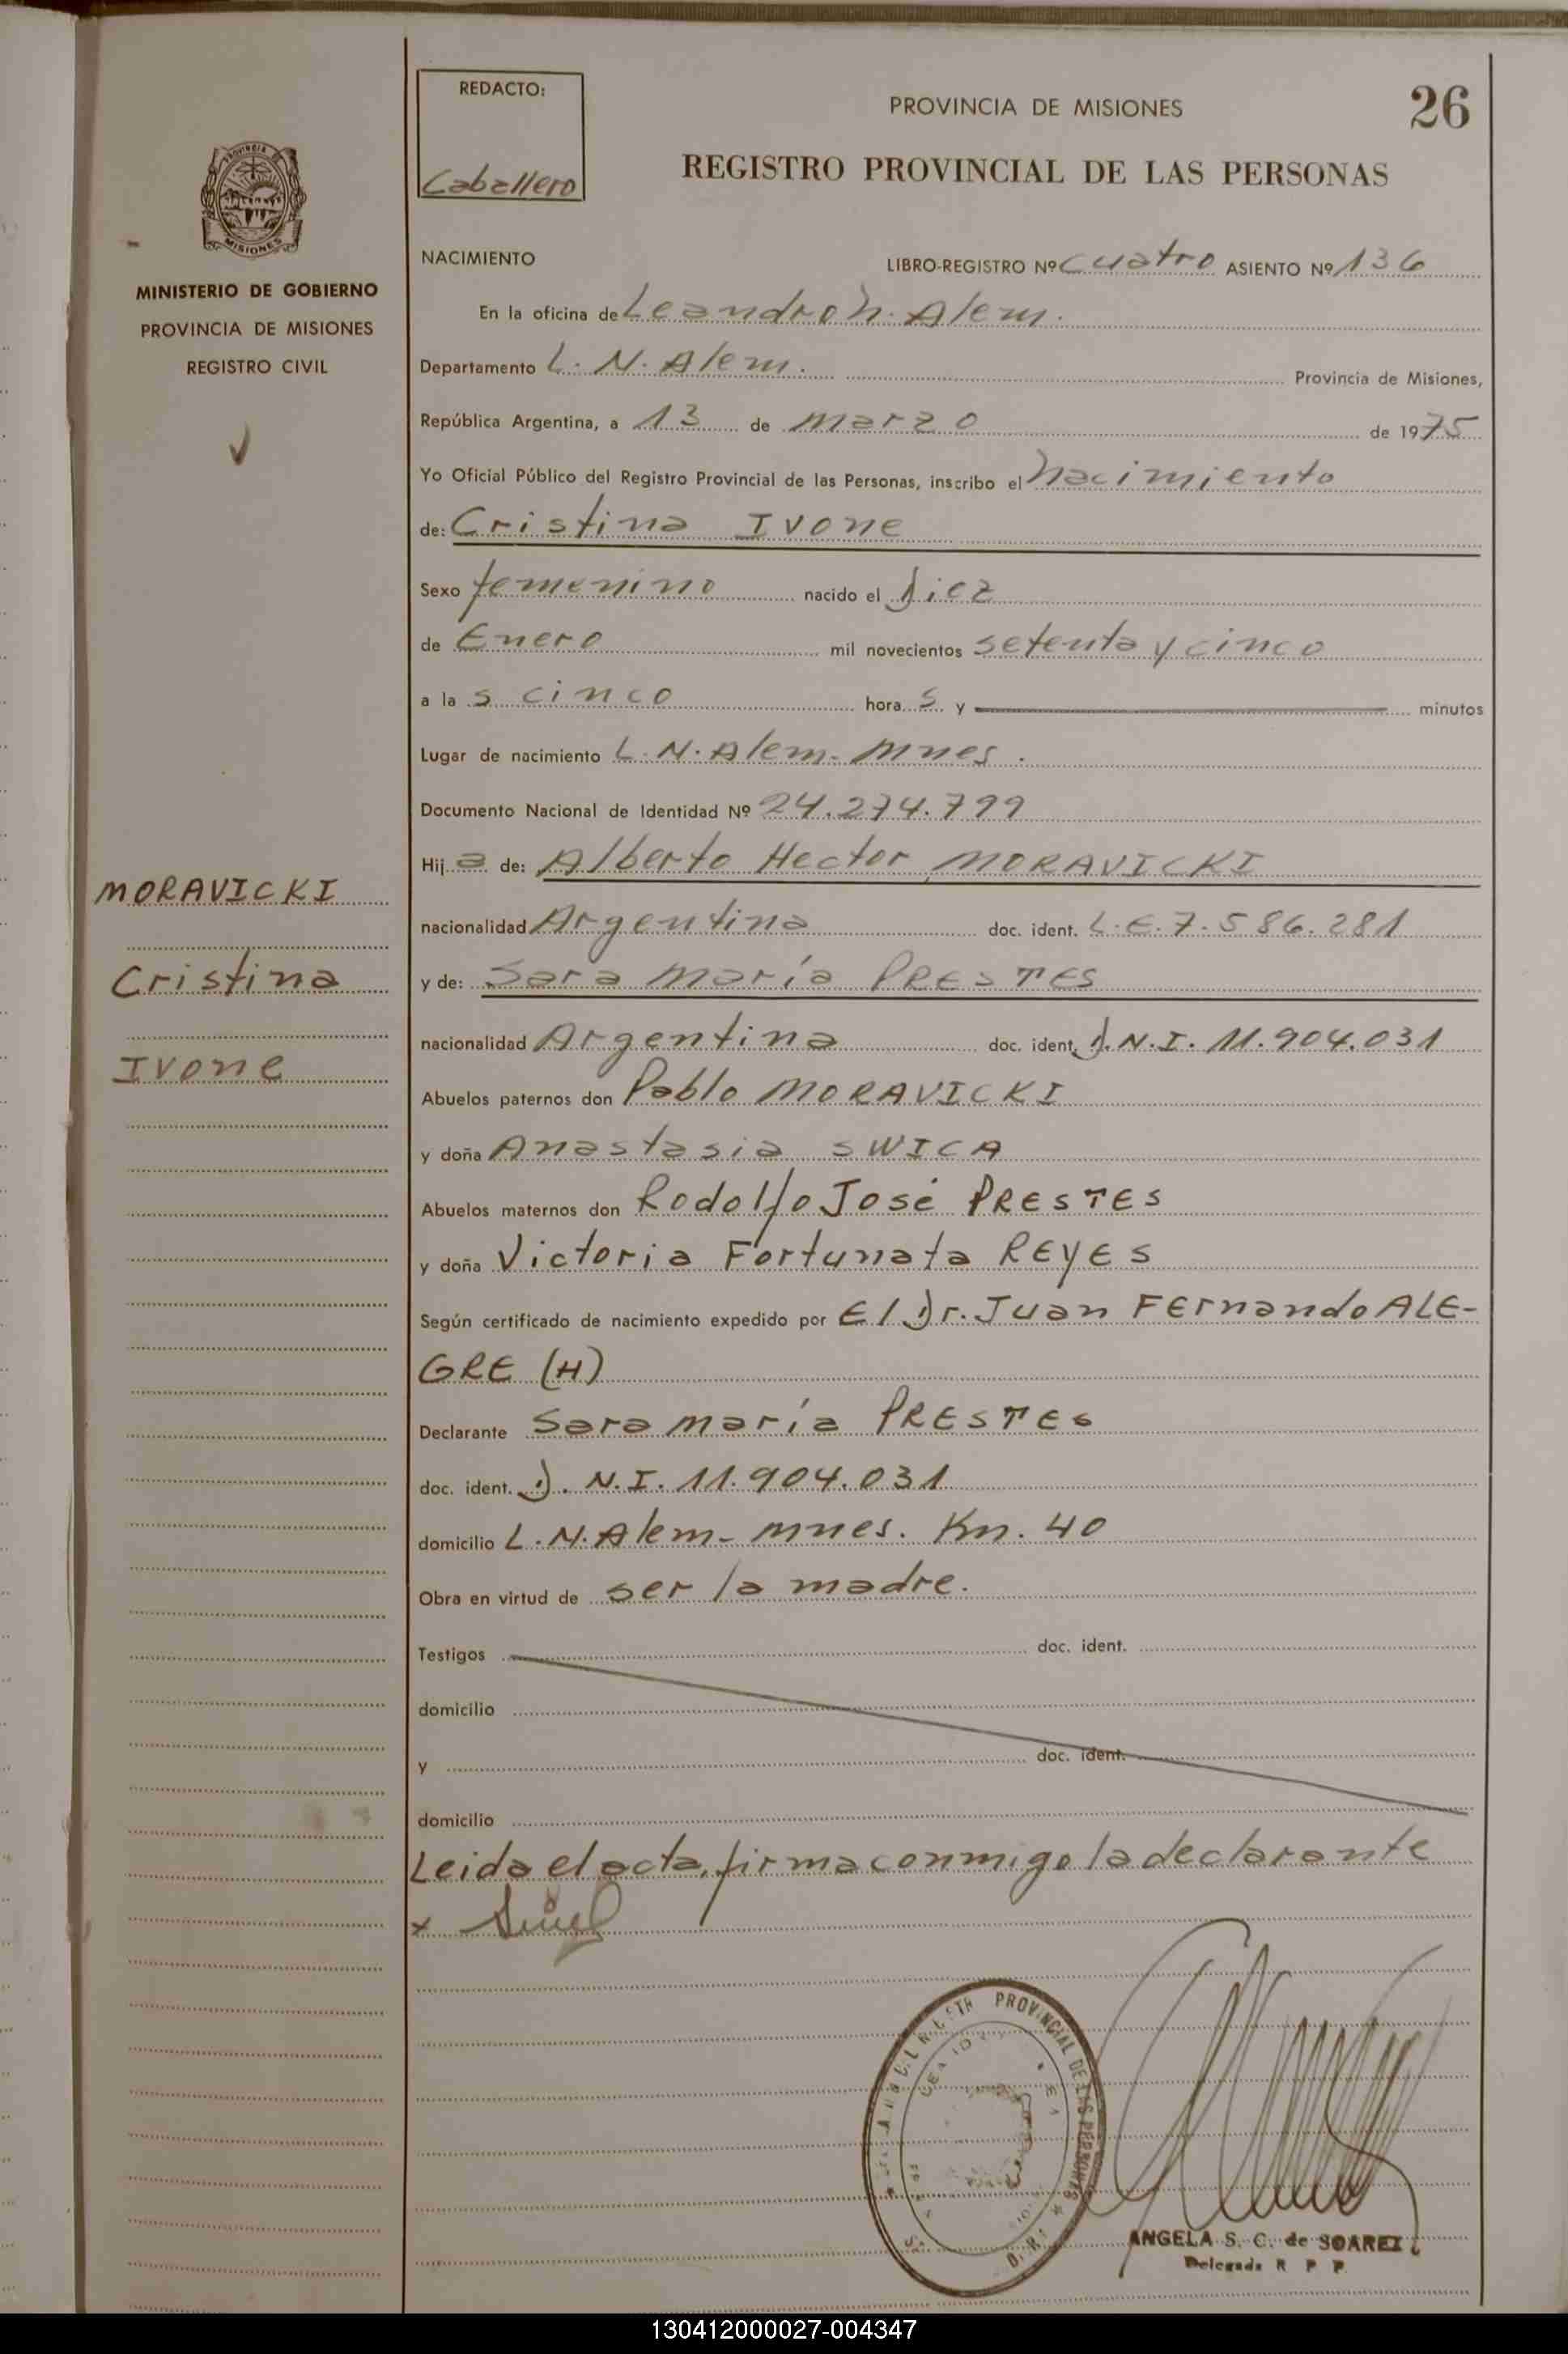 REDACTO:
Caballero
PROVINCIA DE MISIONES
26
REGISTRO PROVINCIAL DE LAS PERSONAS
PROVINCIA DE
MISIONES
MINISTERIO DE GOBIERNO
PROVINCIA DE MISIONES
REGISTRO CIVIL
NACIMIENTO
LIBRO-REGISTRO Nº Cuatro ASIENTO Nº 136
En la oficina de Leandro N. Alem.
Departamento L. N. Alem. Provincia de Misiones,
República Argentina, a 13 de Marzo de 1975
Yo Oficial Público del Registro Provincial de las Personas, inscribo el Nacimiento
de: Cristina Ivone
Sexo femenino nacido el Diez
de Enero mil novecientos setenta y cinco
a la s cinco hora s y minutos
Lugar de nacimiento L. N. Alem- Mnes.
Documento Nacional de Identidad Nº 24.274.799
Hij a de: Alberto Hector MORAVICKI
nacionalidad Argentina doc. ident. L.E. 7.586.281
y de: Sara María PRESTES
nacionalidad Argentina doc. ident. D.N.I. 11.904.031
Abuelos paternos don Pablo MORAVICKI
y doña Anastasia SWICA
Abuelos maternos don Rodolfo José PRESTES
y doña Victoria Fortunata REYES
Según certificado de nacimiento expedido por El Dr. Juan Fernando ALE-
GRE (H)
Declarante Sara María PRESTES
doc. ident. D. N.I. 11.904.031
domicilio L. N. Alem- Mnes. Km. 40
Obra en virtud de ser la madre.
Testigos doc. ident.
domicilio
y doc. ident.
domicilio
Leida el acta, firma conmigo la declarante
x
MORAVICKI
Cristina
Ivone
PROVINCIAL DE LAS PERSONAS
ANGELA S. C. de SOAREZ
Delegada R P P
130412000027-004347